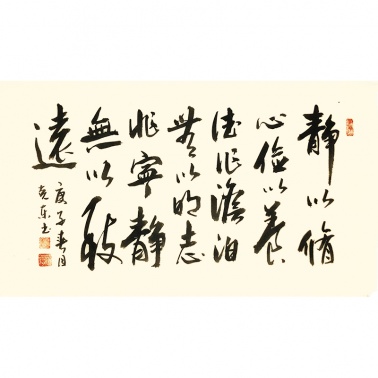 靜以脩
心儉以養
德非澹泊
無以明志
非寧靜
無以致
遠
庚子春月